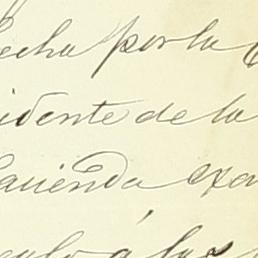 echa por la
idente de la
acienda exa
culo á las